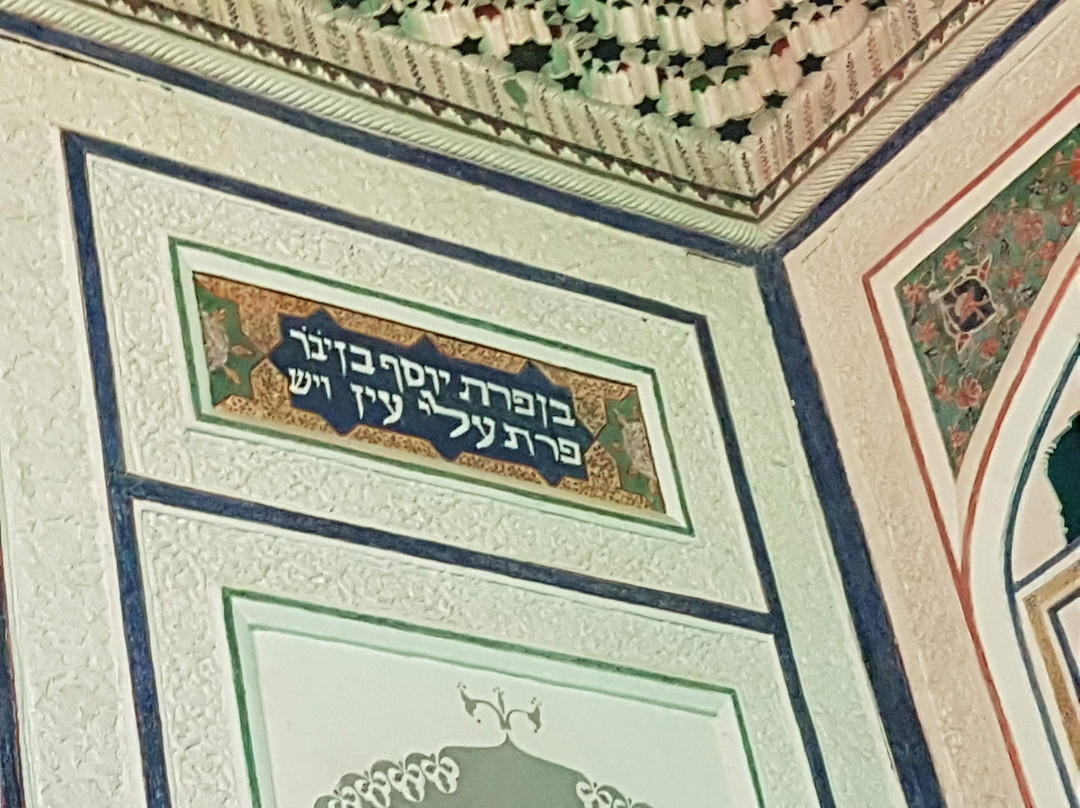 בן פרת יוסף בן יבר
פרת עלי עין ויש